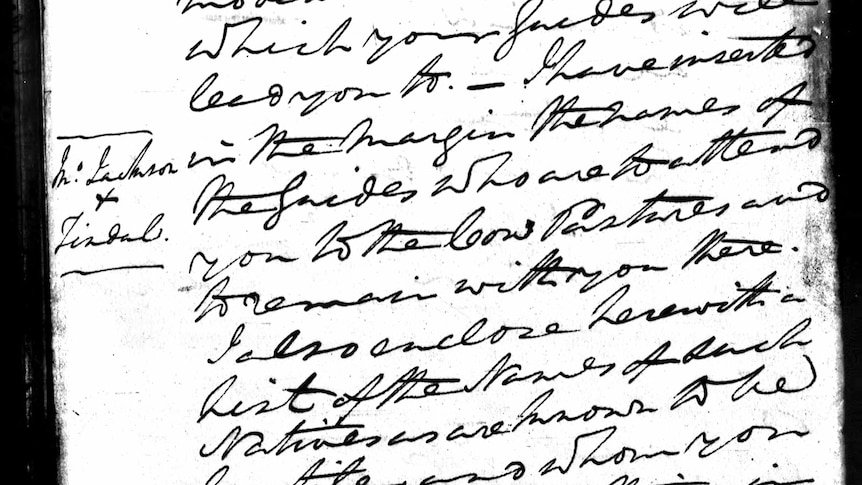 which your Guides will
lead you to. — I have inserted
in the Margin the names of
the Guides who are to attend
you to the Cow Pastures and
to remain with you there.
I also enclose herewith a
List of the Names of such
Natives as are known to be
and whom you
in
Mr. Jackson
+
Tindal.